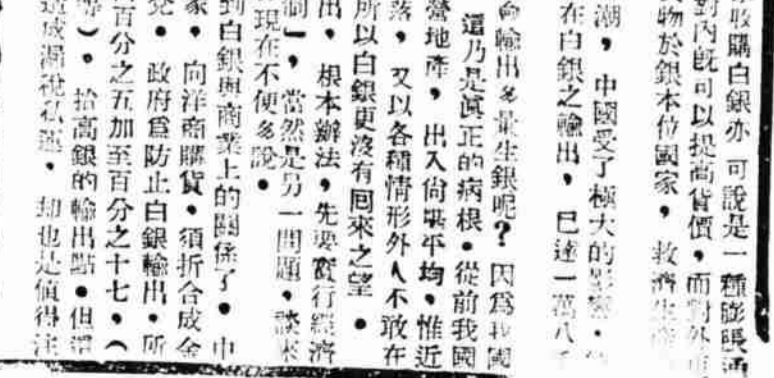 收購白銀亦可說是一種膨脹通
對內既可以提高貨價，而對外
物於銀本位國家，救濟生產
潮，中國受了極大的影響．
在白銀之輸出，已達一萬八千
輸出多量生銀呢？因爲我國
這乃是眞正的病根．從前我國
營地產，出入尙堪平均，惟近
落，又以各種情形外人不敢在
所以白銀更沒有囘來之望．
出，根本辦法，先要實行經濟
個」，當然是另一問題，談來
現在不便多說．
到白銀與商業上的關係了．中
家，向洋商購貨．須折合成金
兌．政府爲防止白銀輸出．所
百分之五加至百分之十七，（
等）．抬高銀的輸出點．但這
造成漏稅私運．却也是值得注